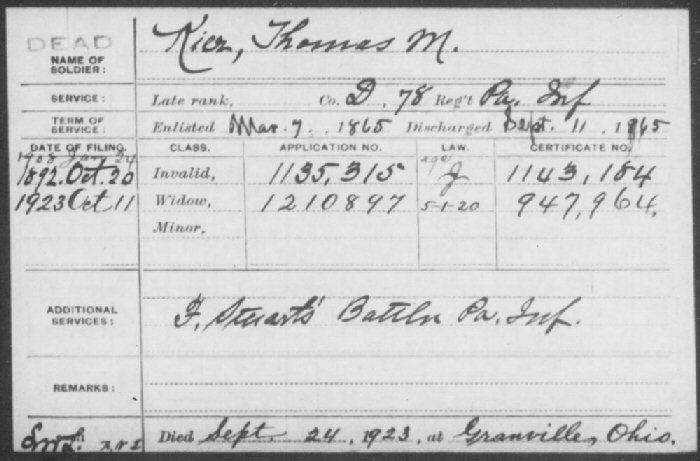 DEAD
NAME OF SOLDIER: Kier, Thomas M.
SERVICE: Late rank, Co. D, 78 Reg't Pa. Inf
TERM OF SERVICE: Enlisted Mar. 7, 1865 Discharged Sept. 11, 1865
DATE OF FILING. CLASS. APPLICATION NO. LAW. CERTIFICATE NO.
1908 Jan 24 age
1892. Oct. 20 Invalid, 1135,315 J 1143,184
1923 Oct 11 Widow, 1210897 5-1-20 947,964.
Minor,
ADDITIONAL SERVICES: F, Stuarts' Battln Pa. Inf.
REMARKS:
Died Sept. 24, 1923, at Granville, Ohio.